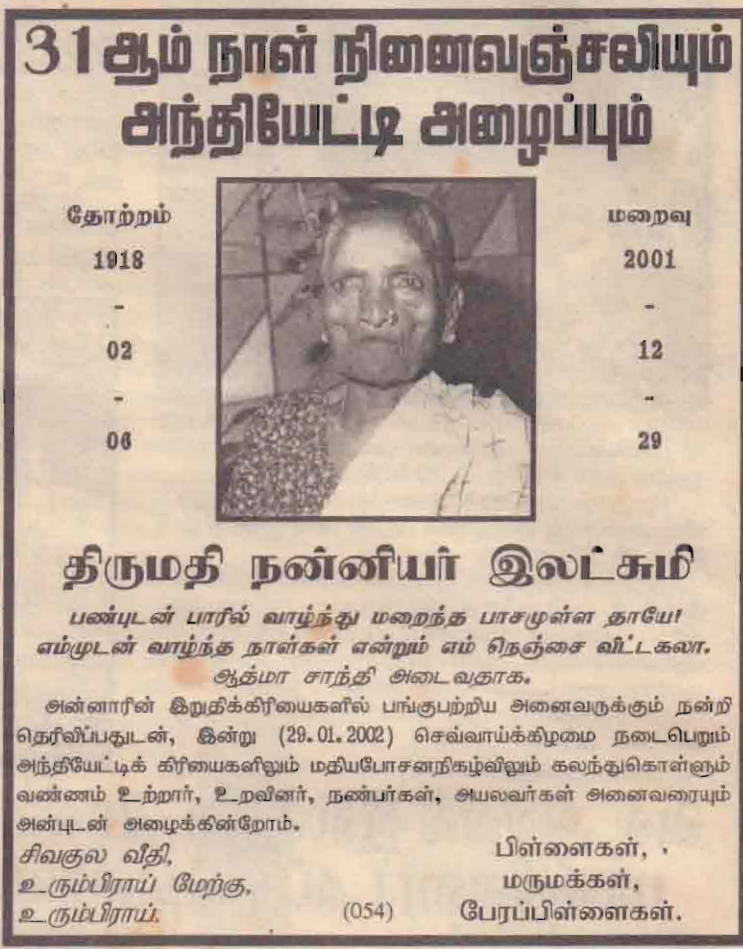 31ஆம் நாள் நினைவஞ்சலியும்
அந்தியேட்டி அழைப்பும்
தோற்றம்
1918
-
02
-
06
மறைவு
2001
-
12
-
29
திருமதி நன்னியர் இலட்சுமி
பண்புடன் பாரில் வாழ்ந்து மறைந்த பாசமுள்ள தாயே!
எம்முடன் வாழ்ந்த நாள்கள் என்றும் எம் நெஞ்சை விட்டகலா.
ஆத்மா சாந்தி அடைவதாக.
அன்னாரின் இறுதிக்கிரியைகளில் பங்குபற்றிய அனைவருக்கும் நன்றி
தெரிவிப்பதுடன், இன்று (29.01.2002) செவ்வாய்க்கிழமை நடைபெறும்
அந்தியேட்டிக் கிரியைகளிலும் மதியபோசனநிகழ்விலும் கலந்துகொள்ளும்
வண்ணம் உற்றார், உறவினர், நண்பர்கள், அயலவர்கள் அனைவரையும்
அன்புடன் அழைக்கின்றோம்.
சிவகுல வீதி,
உரும்பிராய் மேற்கு,
உரும்பிராய்.
(054)
பிள்ளைகள்,
மருமக்கள்,
பேரப்பிள்ளைகள்.